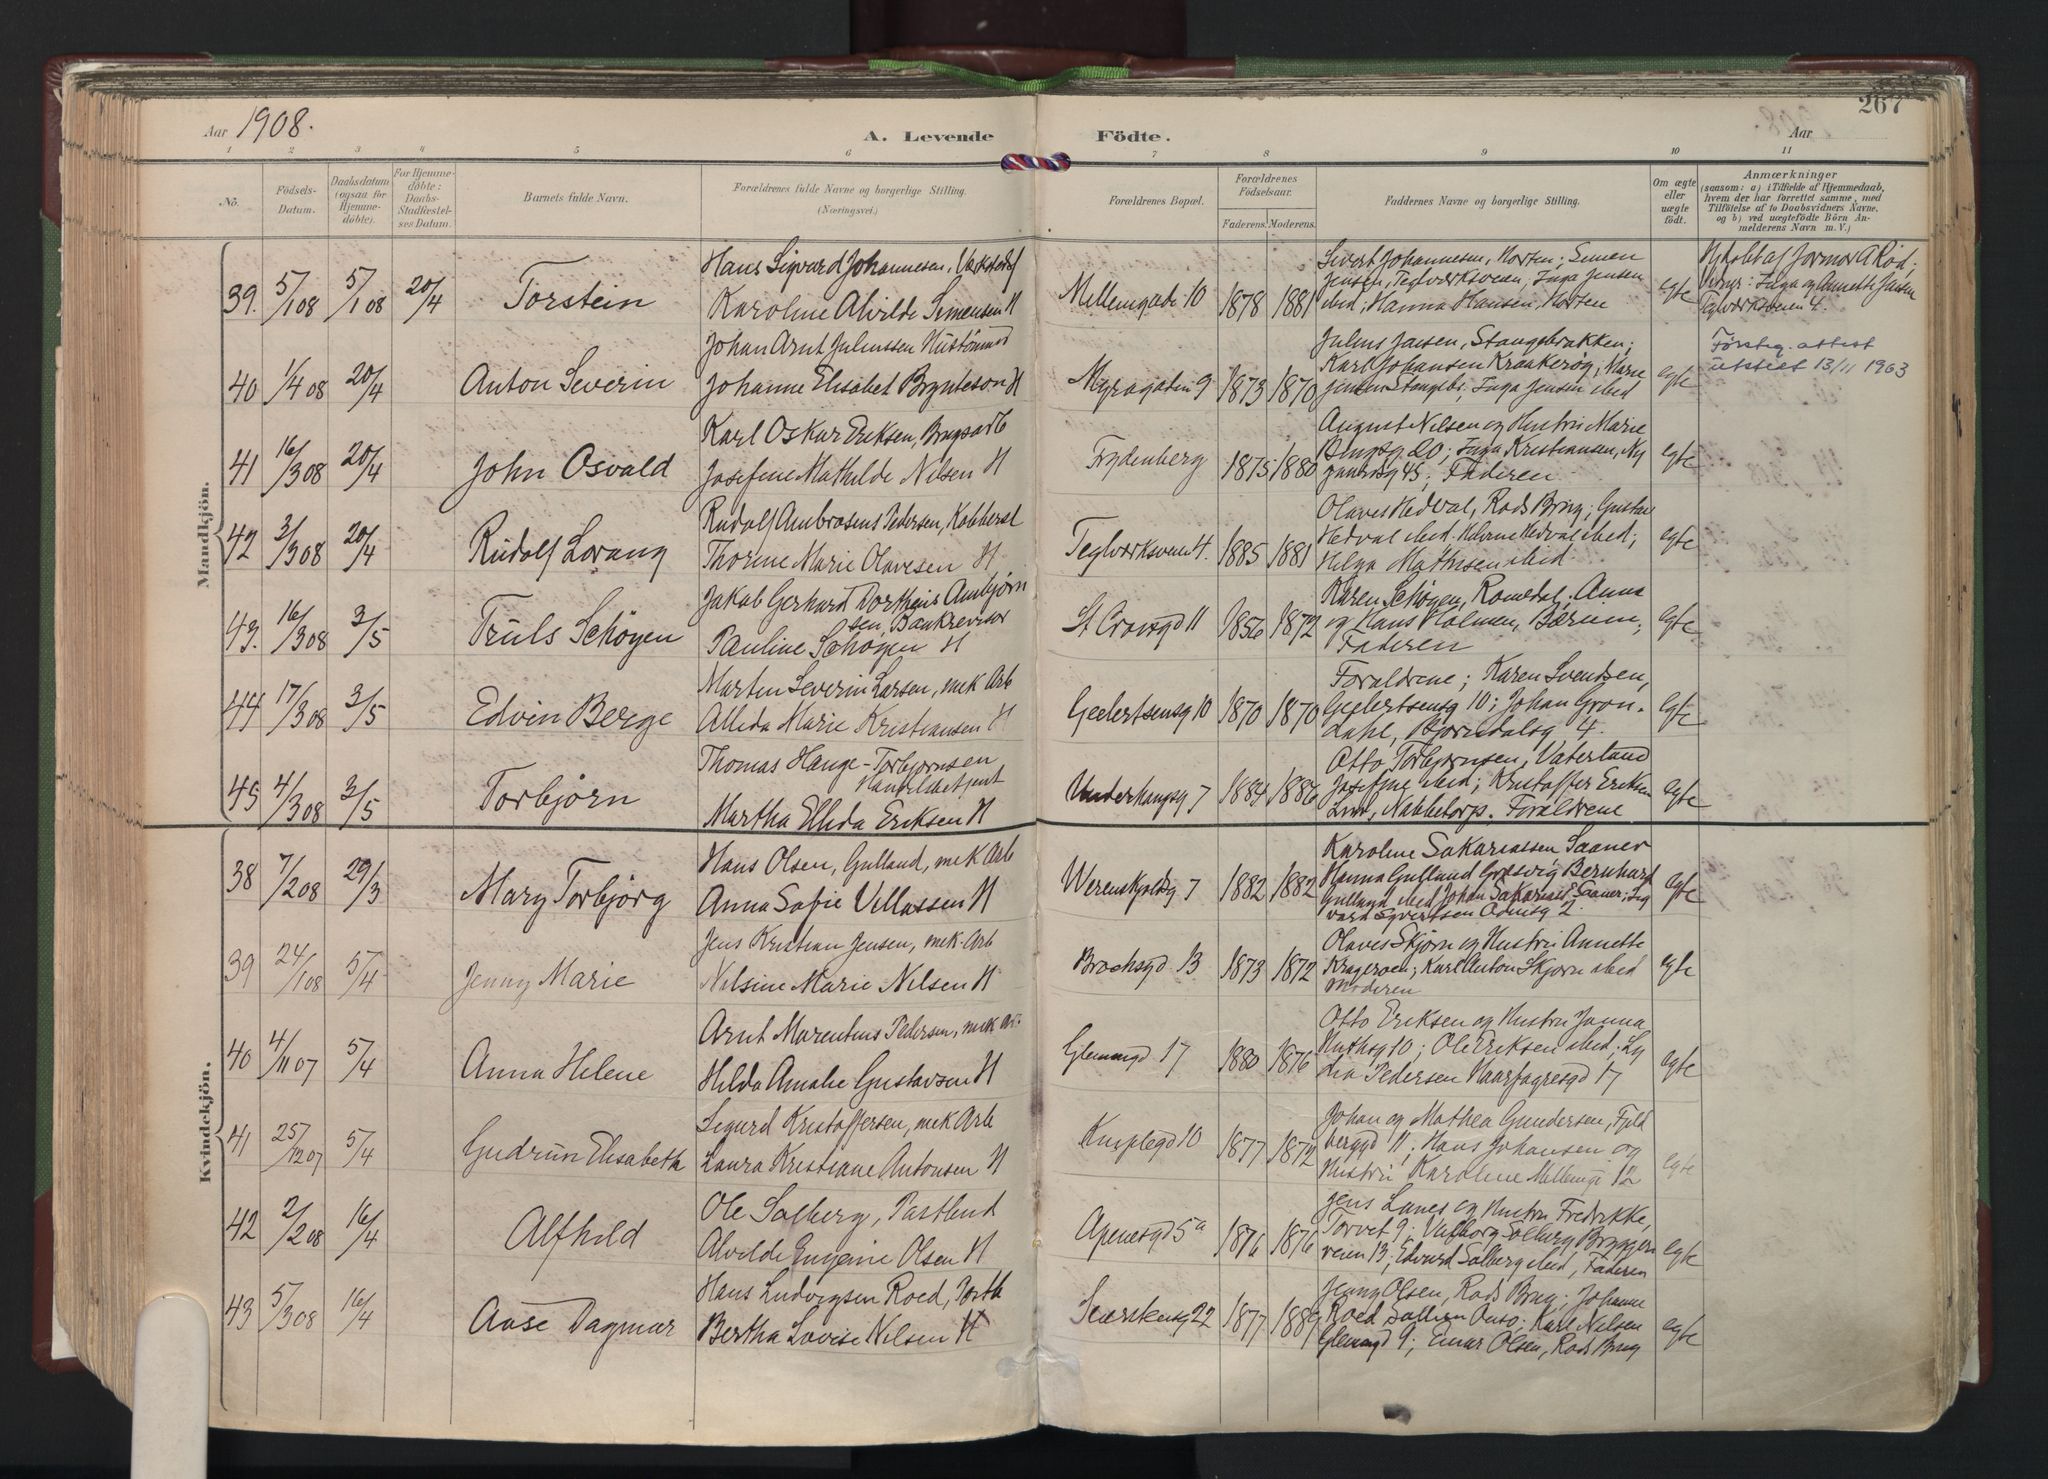 Aar 1908.
A. Levende
Födte.
Aar
267
1 2 3 4 5 6 7 8 9 10 11
No.
Födsels-
Datum.
Daabsdatum
(ogsaa for
Hjemme-
döbte).
For Hjemme-
döbte:
Daabs-
Stadfæstel-
ses Datum.
Barnets fulde Navn.
Forældrenes fulde Navne og borgerlige Stilling.
(Næringsvei.)
Forældrenes Bopæl.
Forældrenes
Födselsaar.
Faderens. Moderens.
Faddernes Navne og borgerlige Stilling.
Om ægte
eller
uægte
födt.
Anmærkninger
(saasom: a) i Tilfælde af Hjemmedaab,
hvem der har forrettet samme, med
Tilföielse af to Daabsvidners Navne,
og b) ved uægtefödte Börn An-
melderens Navn m. V.)
Mandkjön.
39. 5/1 08 5/1 08 20/4 Torstein
Hans Sigvard Johannesen,
Karoline Alvilde Simensen H
Mellemgaden 10 1878 1881
Sivert Johannesen, Horten; Simen
Jensen, Teglverksveien, Inga Jensen
ibid; Hanna Hansen, Horten
egte
Teglverksveien 4.
40 1/4 08 20/4 Anton Severin
Johan Arnt Juliussen
Johanne Elisabet Brynteson H
Myragaden 9 1873 1870
Julius Jansen, Stangebrakken;
Karl Johansen Kraakerøy; Marie
Jensen Stangebr; Inga Jensen ibid
egte
attest
utsted 13/11 1963
41 16/3 08 20/4 John Osvald
Karl Oskar Eriksen, Brugsarb
Josefine Mathilde Nilsen H
Frydenberg 1875 1880
August Nilsen og Hustru Marie
20; Inga Kristiansen, Ny
45; Faderen
egte
42 3/3 08 20/4 Rudolf Lorang
Rudolf Ambrosius Pedersen,
Thorine Marie Olavesen H
Teglverksveien 4. 1885 1881
Olaves Hedval, Rods Brug; Gustav
Hedval ibid. Helene Hedval ibid;
Helga Mathisen ibid.
egte
43. 16/3 08 3/5 Truls Schøyen
Jakob Gerhard Dortheus Arnbjørn
sen, Bankrevisor
Pauline Schøyen H
St Croixgd 11 1856 1872
Karen Schøyen, Romedal, Anna
og Hans Holmen, Bærum;
Faderen
egte
44 17/3 08 3/5 Edvin Berge
Martin Severin Larsen, mek Arb
Allida Marie Kristiansen H
Geelertsensg 10 1870 1870
Forældrene; Karen Svendsen,
Geelertsensg 10; Johan Grøn-
dahl, Bjørndalsg 4.
egte
45 4/3 08 3/5 Torbjørn
Thomas Hauge-Torbjørnsen
Martha Ellida Eriksen H
7 1884 1886
Otto Torbjørnsen, Vaterland
Josefine ibid; Kristoffer Eriksen
Nabbetorp. Forældrene
egte
Kvindekjön.
38 7/2 08 29/3 Mary Torbjørg
Hans Olsen, Gulland, mek Arb
Anna Sofie Villassen H
Werenskjoldsg 7 1882 1882
Karoline Sakariassen Saaner
Hanna Gulland Gresvig Bernhard
Gulland ibid Johan Sakariass. Saaner; Sig
vard Syvertsen
egte
39 24/1 08 5/4 Jenny Marie
Jens Kristian Jensen, mek. Arb
Nilsine Marie Nilsen H
Brochsgd 13 1873 1872
Olaves Skjørn og Hustru Annette
Krageroen; Karl Anton Skjørn ibid
Moderen
egte
40 4/11 07 5/4 Anna Helene
Arnt Marentius Pedersen, mek Ar.
Hilda Amalie Gustavsen H
Glemmgd 17 1880 1876
Otto Eriksen og Hustru Janna,
10; Ole Eriksen ibid; Ly
dia Pedersen Haarfagresgd 17
egte
41 25/12 07 5/4 Gudrun Elisabeth
Sigurd Kristoffersen, mek Arb
Laura Kristiane Antonsen H
Kniplegd 10 1877 1872
Johan og Mathea Gundersen, Fjeld
berggd 11; Hans Johansen og
Hustru Karoline Mellemg 12
egte
42 2/2 08 16/4 Alfhild
Ole Solberg, Postbud
Alvilde Eugenie Olsen H
Apenesgd 5a 1876 1876
Jens Lunes og Hustru Fredrikke,
Torvet 9; Valborg Solberg Bryggeri
veien 13; Edvard Solberg ibid, Faderen
egte
43 5/3 08 16/4 Aase Dagmar
Hans Ludvigsen Roed,
Bertha Lovise Nilsen H
22 1877 1889
Jenny Olsen, Rods Brug; Johanne
Roed Karl Nilsen
Glemmgd 9; Einar Olsen, Rods Brug
egte